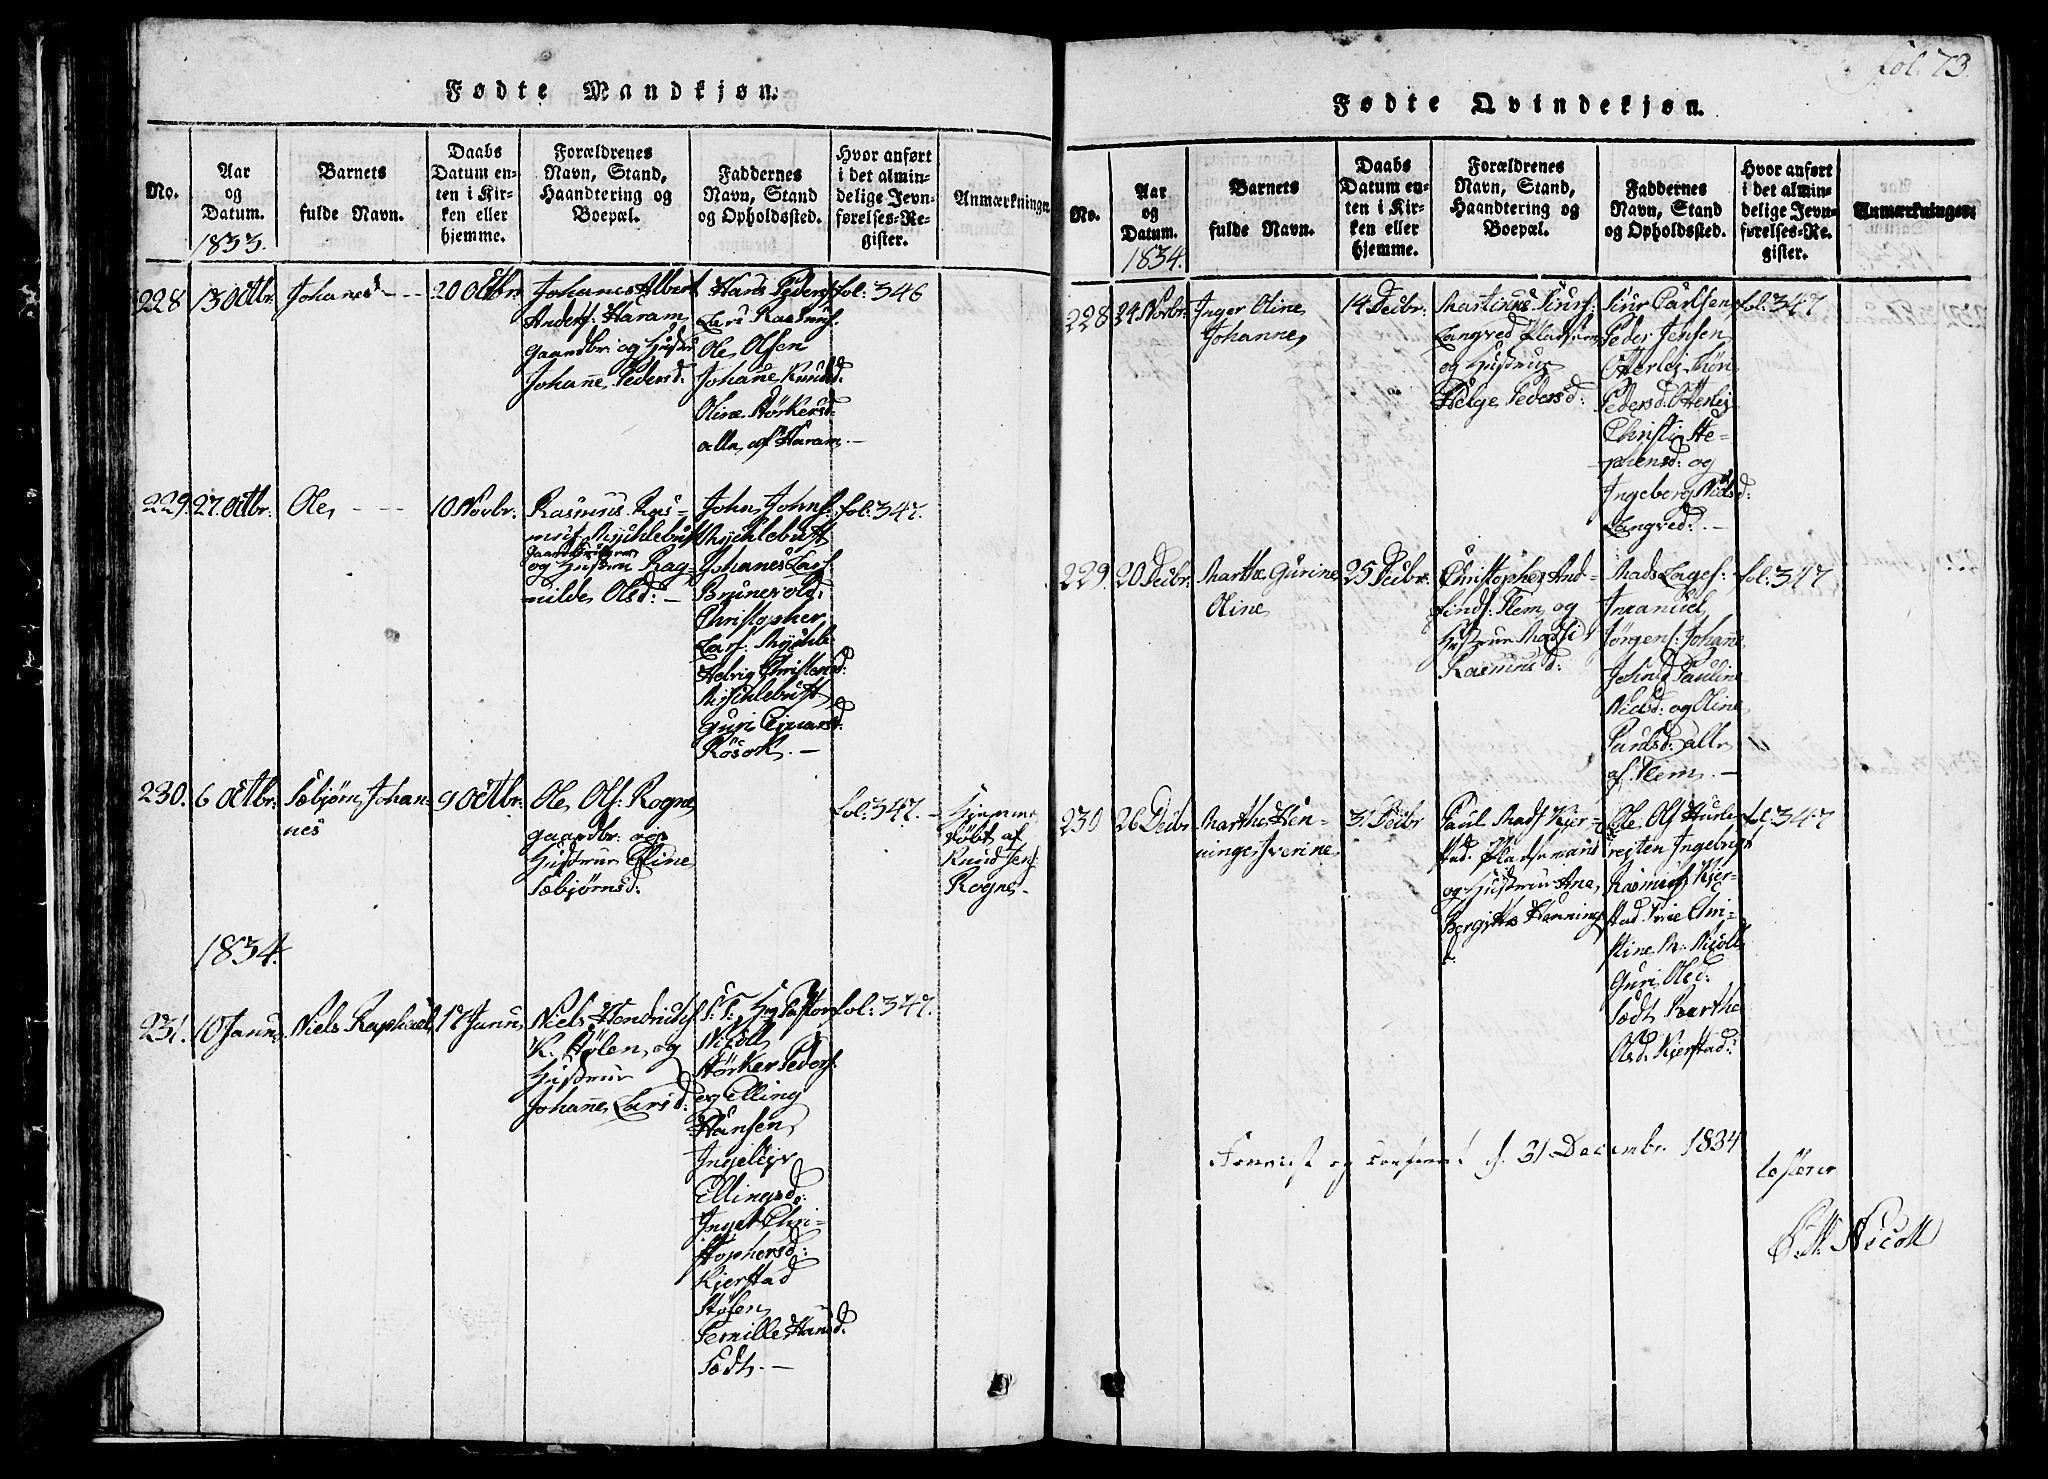 Fødte Mandkjøn.
No.
Aar
og
Datum.
1833.
Barnets
fulde Navn.
Daabs
Datum en-
ten i Kir-
ken eller
hjemme.
Forældrenes
Navn, Stand,
Haandtering og
Boepæl.
Faddernes
Navn, Stand
og Opholdssted.
Hvor anført
i det almin-
delige Jevn-
førelses-Re-
gister.
Anmærkninger
228
13 Octbr.
Johanes
20 Octbr.
Johanes Albert
Anders: Haram
gaardbr: og Hustru
Johañe Pedersd:
Hans Peders:
Lars Rasmus:
Ole Olsen
Johañe Knudsd:
Oline Størkersd:
alle af Haram.
fol: 346
229.
27. Octbr.
Ole
10 Novbr.
Rasmus Ras-
mus: Myhlebust
gaardbruger
og Hustru Rag-
nilde Olsd:
John Johns:
Myhlebust
Johanes Lars:
Brunevold:
Christopher
Lars: Myhleb:
Helvig Christensd:
Myhlebust
Guri Ejnarsd:
Røsok.
fol: 347.
230.
6 Octbr:
Sæbjørn Johan-
nes
9 Octbr:
Ole Ols: Rogne
gaardbr: og
Hustrue Eline
Sæbjørnsd:
fol: 347.
Hjemme
døbt af
Knud Jens:
Rogne
1834.
231.
10 Janu:
Niels Raphael
17 Janu:
Niels Hendrichs:
K. Hølen og
Hustrue
Johañe Larsd:
S: T: Hr Pastor
Nicoll
Størker Peders:
og Elling
Hansen
Ingeleiv
Ellingsd:
Inget Chri-
stophersd:
Kjerstad
Støsen
Pernille Hansd:
Sødt.
fol: 347.
fol. 73.
Fødte Qvindekjøn.
No.
Aar
og
Datum.
1834.
Barnets
fulde Navn.
Daabs
Datum en-
ten i Kir-
ken eller
hjemme.
Forældrenes
Navn, Stand,
Haandtering og
Boepæl.
Faddernes
Navn, Stand
og Opholdssted.
Hvor anført
i det almin-
delige Jevn-
førelses-Re-
gister.
Anmærkninger.
228
24 Novbr.
Inger Oline
Johanne
14 Decbr:
Martinus Siurs:
Langved
og Hustrue
Helge Pedersd:
Siur Carlsen
Peder Jensen
Otterlej
Pedersd: Otterlej
Christi Ste-
phensd: og
Ingeberg Nielsd:
Langved:
fol: 347
229.
20 Decbr:
Marthe Gurine
Oline
25 Decbr:
Christopher And-
finds: Flem og
Hustrue Massi
Rasmusd:
Mads Lages:
Imanuel
Jørgens: Johañe
Johnsd: Pauline
Nielsd: og Oline
Paulsd: alle
af Flem.
fol: 347
230
26 Decbr
Marthe Hen-
ninge Sverine
31 Decbr
Paul Mads: Kjer-
stad. Pladsemand
og Hustrue Ane
Bergitte Henning
d:
Ole Ols: Hurle-
nejten Ingebrigt
Rasmus: Kjer-
stad. Frue Chri-
stine M: Nicoll
Guri Olsd:
Sødt Marthe
Olsd: Kjerstad:
fol: 347
og Conferert d. 31 Decembr. 1834
Nicoll